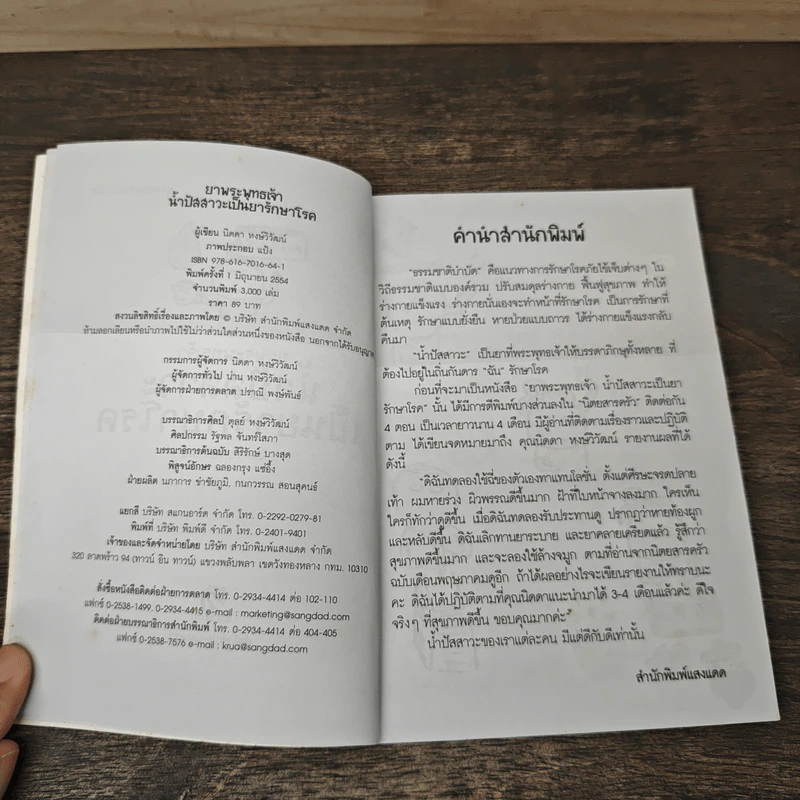 ยาพระพุทธเจ้า
น้ำปัสสาวะเป็นยารักษาโรค
ผู้เขียน นิดดา หงษ์วิวัฒน์
ภาพประกอบ แป้ง
ISBN 978-616-7016-64-1
พิมพ์ครั้งที่ 1 มิถุนายน 2554
จำนวนพิมพ์ 3,000 เล่ม
ราคา 89 บาท
สงวนลิขสิทธิ์เรื่องและภาพโดย © บริษัท สำนักพิมพ์แสงแดด จำกัด
ห้ามลอกเลียนหรือนำภาพไปใช้ไม่ว่าส่วนใดส่วนหนึ่งของหนังสือ นอกจากได้รับอนุญาต
กรรมการผู้จัดการ นิดดา หงษ์วิวัฒน์
ผู้จัดการทั่วไป น่าน หงษ์วิวัฒน์
ผู้จัดการฝ่ายการตลาด ปราณี พงษ์พันธ์
บรรณาธิการศิลป์ ตุลย์ หงษ์วิวัฒน์
ศิลปกรรม รัฐพล จันทร์โสภา
บรรณาธิการต้นฉบับ สิริรักษ์ บางสุด
พิสูจน์อักษร ฉลองกรุง แซ่อึ้ง
ฝ่ายผลิต นภาการ ขำชัยภูมิ, กนกวรรณ สอนสุคนธ์
แยกสี บริษัท สแกนอาร์ต จำกัด โทร. 0-2292-0279-81
พิมพ์ที่ บริษัท พิมพ์ดี จำกัด โทร. 0-2401-9401
เจ้าของและจัดจำหน่ายโดย บริษัท สำนักพิมพ์แสงแดด จำกัด
320 ลาดพร้าว 94 (ทาวน์ อิน ทาวน์) แขวงพลับพลา เขตวังทองหลาง กทม. 10310
สั่งซื้อหนังสือติดต่อฝ่ายการตลาด โทร. 0-2934-4414 ต่อ 102-110
แฟกซ์ 0-2538-1499, 0-2934-4415 e-mail : marketing@sangdad.com
ติดต่อฝ่ายบรรณาธิการสำนักพิมพ์ โทร. 0-2934-4414 ต่อ 404-405
แฟกซ์ 0-2538-7576 e-mail : krua@sangdad.com
คำนำสำนักพิมพ์
"ธรรมชาติบำบัด" คือแนวทางการรักษาโรคภัยไข้เจ็บต่างๆ ใน
วิถีธรรมชาติแบบองค์รวม ปรับสมดุลร่างกาย ฟื้นฟูสุขภาพ ทำให้
ร่างกายแข็งแรง ร่างกายนั่นเองจะทำหน้าที่รักษาโรค เป็นการรักษาที่
ต้นเหตุ รักษาแบบยั่งยืน หายป่วยแบบถาวร ได้ร่างกายแข็งแรงกลับ
คืนมา
"น้ำปัสสาวะ" เป็นยาที่พระพุทธเจ้าให้บรรดาภิกษุทั้งหลาย ที่
ต้องไปอยู่ในถิ่นกันดาร "ฉัน" รักษาโรค
ก่อนที่จะมาเป็นหนังสือ "ยาพระพุทธเจ้า น้ำปัสสาวะเป็นยา
รักษาโรค" นั้น ได้มีการตีพิมพ์บางส่วนลงใน "นิตยสารครัว" ติดต่อกัน
4 ตอน เป็นเวลายาวนาน 4 เดือน มีผู้อ่านที่ติดตามเรื่องราวและปฏิบัติ
ตาม ได้เขียนจดหมายมาถึง คุณนิดดา หงษ์วิวัฒน์ รายงานผลที่ได้
ดังนี้
"ดิฉันทดลองใช้ฉี่ของตัวเองทาแทนโลชั่น ตั้งแต่ศีรษะจรดปลาย
เท้า ผมหายร่วง ผิวพรรณดีขึ้นมาก ฝ้าที่ใบหน้าจางลงมาก ใครเห็น
ใครก็ทักว่าดูดีขึ้น เมื่อดิฉันทดลองรับประทานดู ปรากฏว่าหายท้องผูก
และหลับดีขึ้น ดิฉันเลิกทานยาระบาย และยาคลายเครียดแล้ว รู้สึกว่า
สุขภาพดีขึ้นมาก และจะลองใช้ล้างจมูก ตามที่อ่านจากนิตยสารครัว
ฉบับเดือนพฤษภาคมดูอีก ถ้าได้ผลอย่างไรจะเขียนรายงานให้ทราบนะ
คะ ดิฉันได้ปฏิบัติตามที่คุณนิดดาแนะนำมาได้ 3-4 เดือนแล้วค่ะ ดีใจ
จริงๆ ที่สุขภาพดีขึ้น ขอบคุณมากค่ะ"
น้ำปัสสาวะของเราแต่ละคน มีแต่ดีกับดีเท่านั้น
สำนักพิมพ์แสงแดด